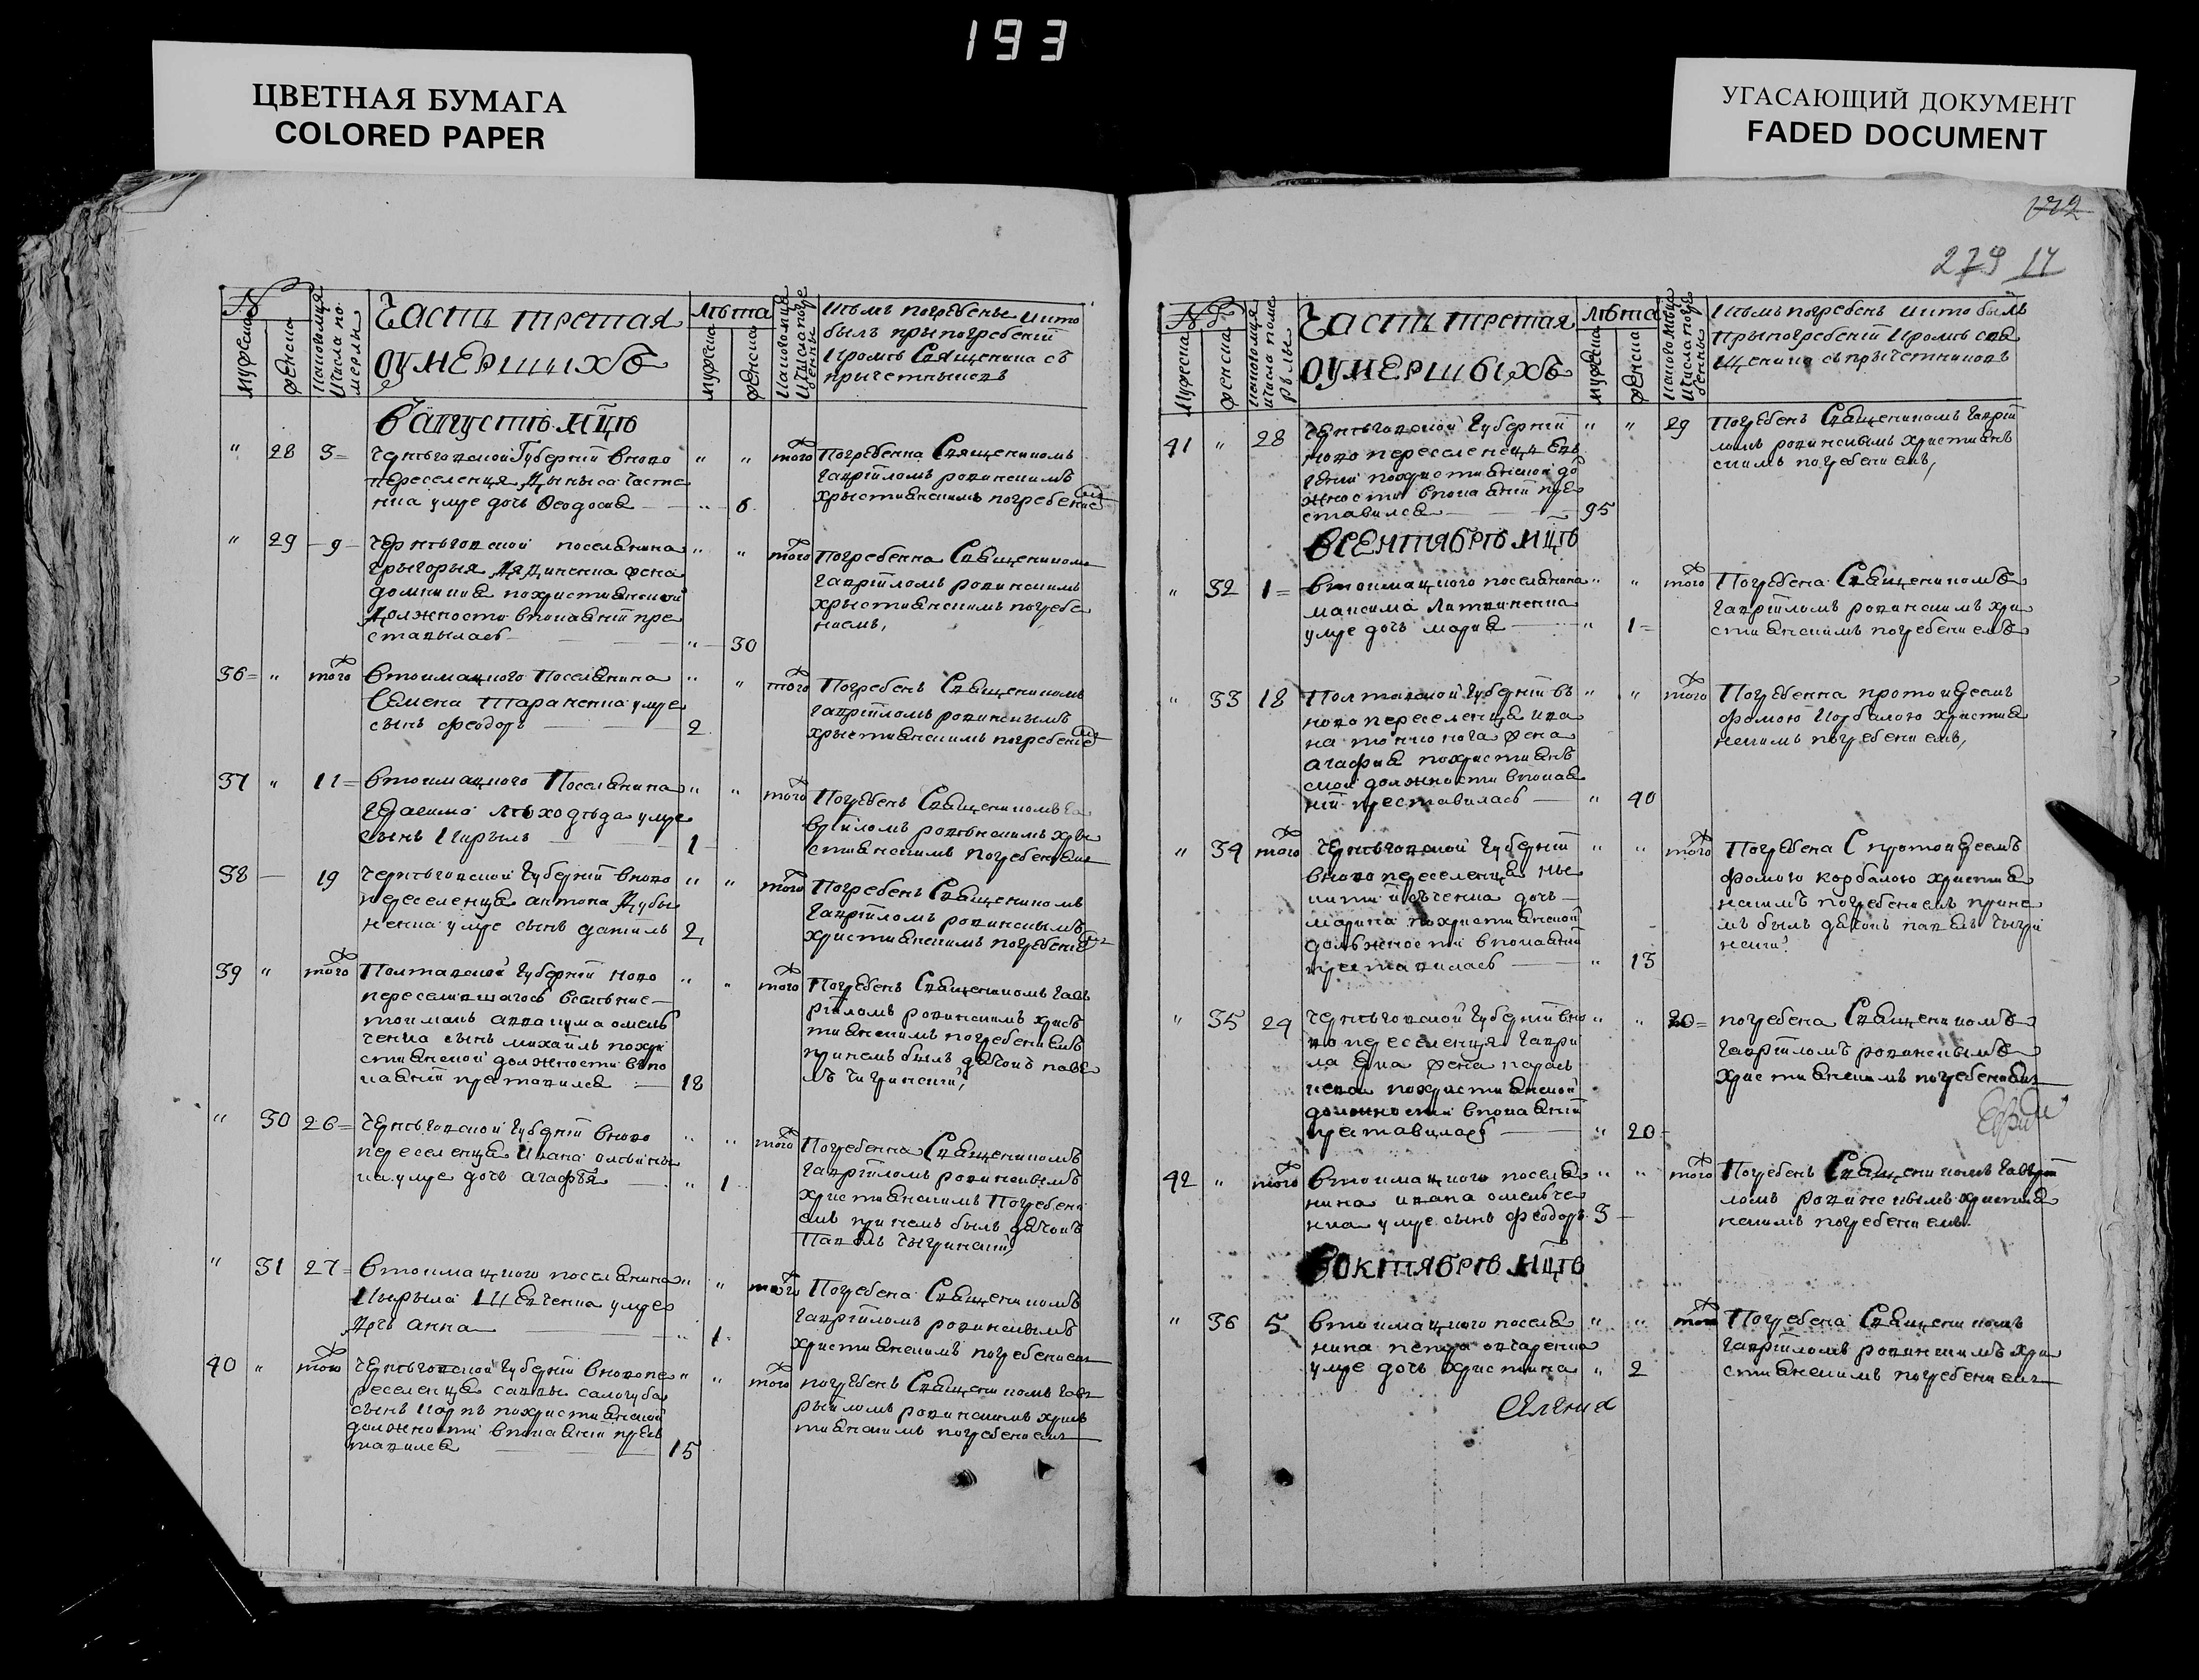 193
ЦВЕТНАЯ БУМАГА
COLORED PAPER
УГАСАЮЩИЙ ДОКУМЕНТ
FADED DOCUMENT
279 14
№
мужеска
женска
Части третая
оумершихъ
лѣта
мужеска
женска
Кѣмъ погребены и кто
былъ при погребеніи
кромѣ Священика съ
причетникомъ
Вавгустѣ мцѣ
" 28 3 Чернѣговской Губерніи вново
переселенця
умре дочь Феодосиа 6
того Погребенна Священикомъ
Гавріиломъ ровинскимъ
христианскимъ погребение
" 29 9 Чернѣговской поселянина
Григорыя жена
домникиа похристианской
должности впокаянии пре
ставылась 30
того Погребенна Священикомъ
Гавріиломъ ровинскимъ
христианскимъ погребе
ниемъ,
36 " того Втокмацкого Поселянина
Семена Тараненка умре
сынъ феодоръ 2
того Погребенъ Священикомъ
Гавріиломъ ровинскымъ
христианскимъ погребение
37 " 11 Втокмацкого Поселянина
Герасима умре
сынъ Кирылъ 1
того Погребенъ Священикомъ Га
вріиломъ ровѣнскимъ хри
стианскимъ погребением
38 — 19 Чернѣговской Губерніи вново
переселенця антона Дубы
ненка умре сынъ данилъ 2
того Погребенъ Священикомъ
Гавріиломъ ровинскымъ
христианскимъ погребение
39 " того Полтавской Губерніи ново
переселившагось
токмакъ аввакума омелъ
ченка сынъ михаилъ похри
стианской должности впо
каянии преставился 18
того Погребенъ Священикомъ Гавъ
ріиломъ ровинскимъ христ
тианскимъ погребениемъ
принемъ былъ дяконъ паве
лъ чигринский,
" 30 26 Чернѣговской Губерніи вново
переселенця Ивана
ка умре дочь агафѣя 1
того Погребенна Священикомъ
Гавріиломъ ровинскымъ
христианскимъ Погребени
емъ принемъ былъ дяконъ
Павелъ Чыгринский,
" 31 27 Втокмацкого поселянина
Кырыла Шевченка умре
дочь анна 1
того Погребена Священикомъ
Гавріиломъ ровинскымъ
христианскимъ погребением
40 " того Чернѣговской Губерніи вновопе
реселенця саввы самогуба
сынъ карпъ похристианской
должности впокаянии прес
тавился 15
того погребенъ Священикомъ Гавъ
рыиломъ ровинскимъ хрис
тианскимъ погребением
мужеска
женска
Части третая
оумершыхъ
лѣта
мужеска
женска
Кѣмъ погребенъ и кто былъ
прыпогребеніи кромѣ свя
щеника съпрычетникомъ
41 " 28 Чернѣговской Губерніи
ново переселенецъ
похристианской до
лжности впокаянии пре
ставился 95
29 Погребенъ Священикомъ Гавріи
ломъ ровинскымъ христианъ
скимъ погребениемъ,
Всентябрѣ мцѣ
" 32 1 Втокмацкого поселянина
максима Литвиненка
умре дочь мариа 1
того Погребена Священикомъ
Гавріиломъ ровинскимъ хри
стианскимъ погребениемъ
" 33 18 Полтавской Губерніи въ
ново переселенця ива
на жена
агафиа похристианъ
ской должности впокая
нии преставилась 40
того Погребенна протоиреемъ
фомою Корбалою христиа
нскимъ погребениемъ,
" 34 того Чернѣговской Губерніи
вново переселенця
дочь
марина похристианской
должности впокаянии
преставилась 13
того Погребена протоиреемъ
фомою корбалою христиа
нскимъ погребениемъ прине
мъ былъ дяконъ павелъ чыгри
нский
" 35 24 Чернѣговской Губерніи вно
во переселенця Гаври
ла жена параск
кева похристианской
должности впокаянии
преставилась 20
погребена Священикомъ
Гавріиломъ ровинскымъ
христианскимъ погребением
42 " того Втокмацкого поселя
нина ивана омелъче
нка умре сынъ феодоръ 3
того Погребенъ Священикомъ Гавріи
ломъ ровинскымъ христиа
нскимъ погребениемъ.
Воктябрѣ мцѣ
" 36 5 Втокмацкого поселя
нина петра овчаренка
умре дочь христина 2
того Погребена Священикомъ
Гавріиломъ ровинскимъ хри
стианскимъ погребением